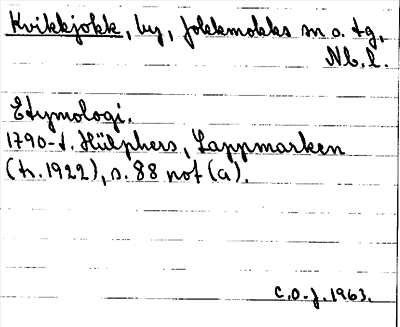 Kvikkjokk, by, Jokkmokks sn o. tg,
Nb. l.
Etymologi.
1790-t. Hülphers, Lappmarken
(h. 1922), s. 88 not (a).
C.O.J. 1963.